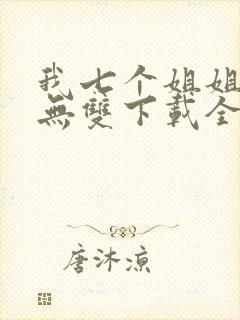 我七个姐姐
無雙下載全
唐沐凉